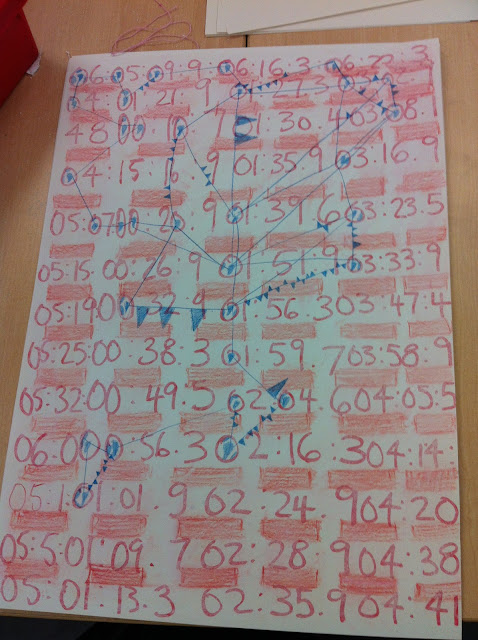 06.05:09.9:06.16.3:06
04:01:21.9
48:00:10.7 01.30.403:08.
04:15.16.9 01.35.9.03.16.9
05:07:00:20.9:01.39.603:23.5
05:15.00:26.9:01.51.9:03:33.9
05:19:00:32.9:01:56.303.47.4
05:25:00.38.301:59.703:58.9
05:32:00.49.502:04.604:05:5
06:00:00:56.302.16.304.14.
05:1:01:01.902.24.904.20
05:5:01:09.702:28.904.38
05:01:13.3 02:35.904.41